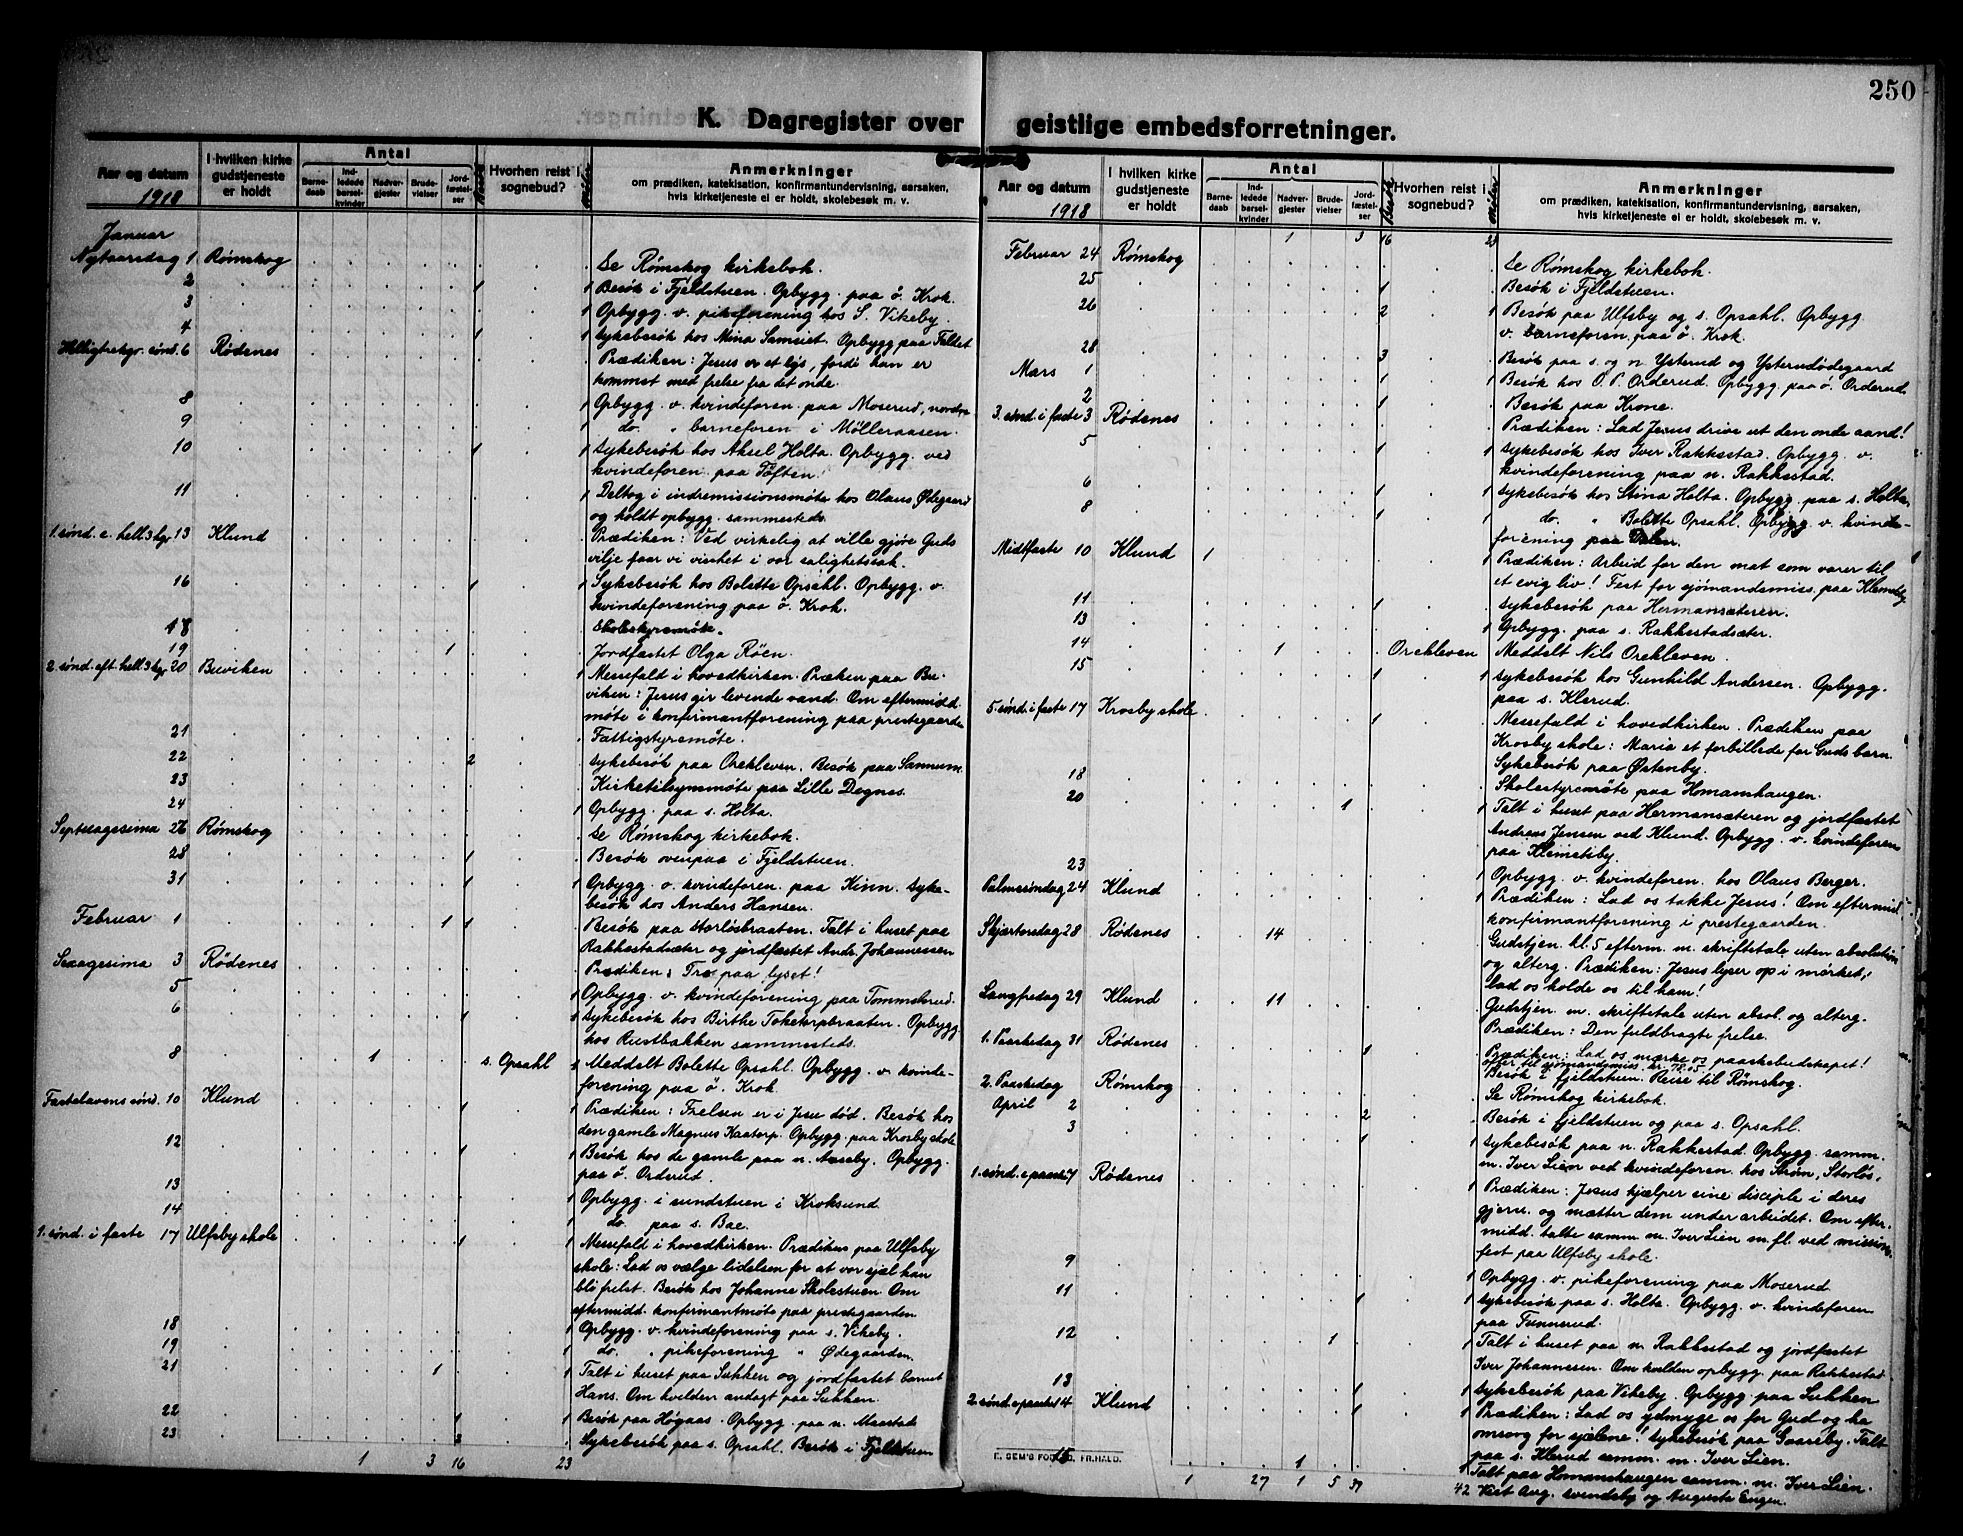 250
K. Dagregister over geistlige embedsforretninger.
Aar og datum
1918
I hvilken kirke gudstjeneste er holdt
Antal
Barnedaab
Indledede barselkvinder
Nadvergjester
Brudevielser
Jordfæstelser
Besøk
Hvorhen reist i sognebud?
Anmerkninger
om prædiken, katekisation, konfirmantundervisning, aarsaken, hvis kirketjeneste ei er holdt, skolebesøk m. v.
Januar
Nytaarsdag 1 Rømskog Se Rømskog kirkebok.
2 1 1 Besøk i Fjeldstuen. Opbygg. paa ö. Krok.
3 1 Opbygg. v. pikeforening hos S. Vikeby.
4 1 1 Sykebesøk hos Mina Samuet. Opbygg paa
Helligtrekgr. sönd. 6 Rödenes Prædiken: Jesus er et lys, fordi han er
kommet med frelse fra det onde.
8 1 Opbygg. v. kvindeforen. paa Moserud, nordre
9 1 do. " barneforen i Mölleraasen.
10 1 1 Sykebesøk hos Aksel Holta. Opbygg. ved
kvindeforen. paa Toften.
11 1 Deltog i indremissionsmöte hos Olaus Ødegaard
og holdt opbygg. sammesteds.
1. sönd. e. hell. 3 kgr. 13 Klund Prædiken: Ved virkelig at ville gjöre Guds
vilje faar vi vished i vor salighetssak.
16 1 1 Sykebesøk hos Bolette Opsahl. Opbygg. v.
kvindeforening paa ö. Krok.
18 Skolestyremöte.
19 1 Jordfæstet Olga Röen.
2. sönd. eft. hell. 3 kgr. 20 Buviken 1 Messefald i hovedkirken. Præken paa Bu-
viken: Jesus gir levende vand. Om eftermidd.
möte i konfirmantforening paa prestegaarden
21 Fattigstyremöte.
22 2 Sykebesøk paa Orekleven. Besøk paa Sannum.
23 Kirketilsynsmöte paa Lille Degnes.
24 1 Opbygg. paa s. Holta.
Septuagesima 26 Rømskog Se Rømskog kirkebok.
28 1 Besøk ovenpaa i Fjeldstuen.
31 1 1 Opbygg. v. kvindeforen. paa Kinn. Syke-
besøk hos Anders Hansen.
Februar 1 1 1 Besøk paa Storlösbraaten. Talt i huset paa
Rakkestadsæter og jordfæstet Andr. Johannessen
Sexagesima 3 Rödenes Prædiken: Tro paa lyset!
5 1 Opbygg. v. kvindeforening paa Tommelsrud.
6 1 1 Sykebesøk hos Birthe Toketorpbraaten. Opbygg.
hos Rustbakken sammesteds.
8 1 s. Opsahl 1 Meddelt Bolette Opsahl. Opbygg. v. kvinde-
forening paa ö. Krok
Fastelavens sönd. 10 Klund 1 1 Prædiken: Frelsen er i Jesu död. Besøk hos
den gamle Magnus Kaatorp. Opbygg. paa Krosby skole
12 1 1 Besøk hos de gamle paa n. Aaseby. Opbygg.
paa ö. Orderud.
13 1 Opbygg. i sundstuen i Kroksund.
14 1 do. paa s. Bae.
1. sönd. i faste 17 Ulfsby skole 1 1 Messefald i hovedkirken. Prædiken paa Ulfsby
skole: Lad os vælge lidelsen for at vor sjæl kan
bli frelst. Besøk hos Johanne Skolestuen. Om
eftermidd. konfirmantmöte paa prestegaarden
18 1 Opbygg. v. kvindeforening paa s. Vikeby.
19 1 do. " pikeforening " Ødegaarden.
21 1 1 Talt i huset paa Sukken og jordfæstet barnet
Hans. Om kvelden andagt paa Sukken.
22 1 1 Besøk paa Högaas. Opbygg. paa n. Maastad
23 Sykebesøk paa s. Opsahl. Besøk i Fjeldstuen
1 3 16 23
Aar og datum
1918
I hvilken kirke gudstjeneste er holdt
Antal
Barnedaab
Indledede barselkvinder
Nadvergjester
Brudevielser
Jordfæstelser
Besøk
Hvorhen reist i sognebud?
Anmerkninger
om prædiken, katekisation, konfirmantundervisning, aarsaken, hvis kirketjeneste ei er holdt, skolebesøk m. v.
1 3 16 23
Februar 24 Rømskog Se Rømskog kirkebok.
25 1 Besøk i Fjeldstuen.
26 2 1 Besøk paa Ulfsby og s. Opsahl. Opbygg
v. barneforen. paa ö. Krok.
28 3 Besøk paa s. og n. Ysterud og Ysterudödegaard
Mars 1 1 1 Besøk hos O. P. Orderud. Opbygg. paa ö. Orderud
2 1 Besøk paa Krone.
3. sönd. i faste 3 Rödenes Prædiken: Lad Jesus drive ut den onde aand!
5 1 1 Sykebesøk hos Iver Rakkestad. Opbygg. v.
kvindeforening paa n. Rakkestad.
6 1 1 Sykebesøk hos Stina Holta. Opbygg. paa s. Holta
8 1 1 do. " Bolette Opsahl. Opbygg v. kvinde-
forening paa Dalen.
Midtfaste 10 Klund 1 1 Prædiken: Arbeid for den mat som varer til
et evig liv! Fest for sjömandsmiss. paa Klemetsby
11 1 Sykebesøk paa Hermansæteren.
13 1 Opbygg. paa s. Rakkestadsæter.
14 1 Orekleven Meddelt Nils Orekleven.
15 1 1 Sykebesøk hos Gunhild Andersen. Opbygg.
paa s. Klerud.
5. sönd. i faste 17 Krosby skole 1 Messefald i hovedkirken. Prædiken paa
Krosby skole: Maria et forbillede for Guds barn.
Sykebesøk paa Østenby.
18 Skolestyremöte paa Homanshaugen.
20 1 1 Talt i huset paa Hermansæteren og jordfæstet
Andreas Jensen ved Klund. Opbygg. v. kvindeforen
paa Klemetsby.
23 1 Opbygg. v. kvindeforen. hos Olaus Berger.
Palmesöndag 24 Klund 1 Prædiken: Lad os takke Jesus! Om eftermid.
konfirmantforening i prestegaarden.
Skjærtorsdag 28 Rödenes 14 Gudstjen. kl. 5 efterm. m. skriftetale uten absolution
og alterg. Prædiken: Jesus lyser op i mörket,
lad os holde os til ham!
Langfredag 29 Klund 11 Gudstjen. m. skriftetale uten absol. og alterg.
Prædiken: Den fuldbragte frelse.
1. Paaskedag 31 Rödenes 1 Prædiken: Lad os mærke os paaskebudskapet!
Offer til sjömandsmiss. kr. 78.05
Besøk i Fjeldstuen. Reise til Rømskog.
2. Paaskedag Rømskog Se Rømskog kirkebok.
April 2 2 Besøk i Fjeldstuen og paa s. Opsahl.
3 1 1 Sykebesøk paa n. Rakkestad. Opbygg. samm.
m. Iver Lien ved kvindeforen. hos Ström, Storlös.
1. sönd. e. paaske 7 Rödenes 1 Prædiken: Jesus hjælper sine disciple i deres
gjern. og mætter dem under arbeidet. Om efter-
midd. talte samm. m. Iver Lien m. fl. ved missions-
fest paa Ulfsby skole.
9 1 Opbygg. v. pikeforening paa Moserud.
11 1 1 Sykebesøk paa s. Holta. Opbygg. v. kvindeforen
paa Tunnerud.
12 1 1 Talt i huset paa n. Rakkestad og jordfæstet
Iver Johannessen. Om kvelden opbygg. paa Rakkestad
13 1 1 Sykebesøk paa Vikeby. Opbygg. paa Sukken
2. sönd. e. paaske 14 Klund 1 1 Prædiken: Lad os ydmyge os for Gud og ha
omsorg for sjælene! Sykebesøk paa Gaaseby. Talt
paa s. Klerud samm. m. Iver Lien.
15 1 1 Talt paa Homanshaugen samm. m. Iver Lien.
Viet Aug. Svendsby og Auguste Engen.
1 27 1 5 39 42
FR.HALD.